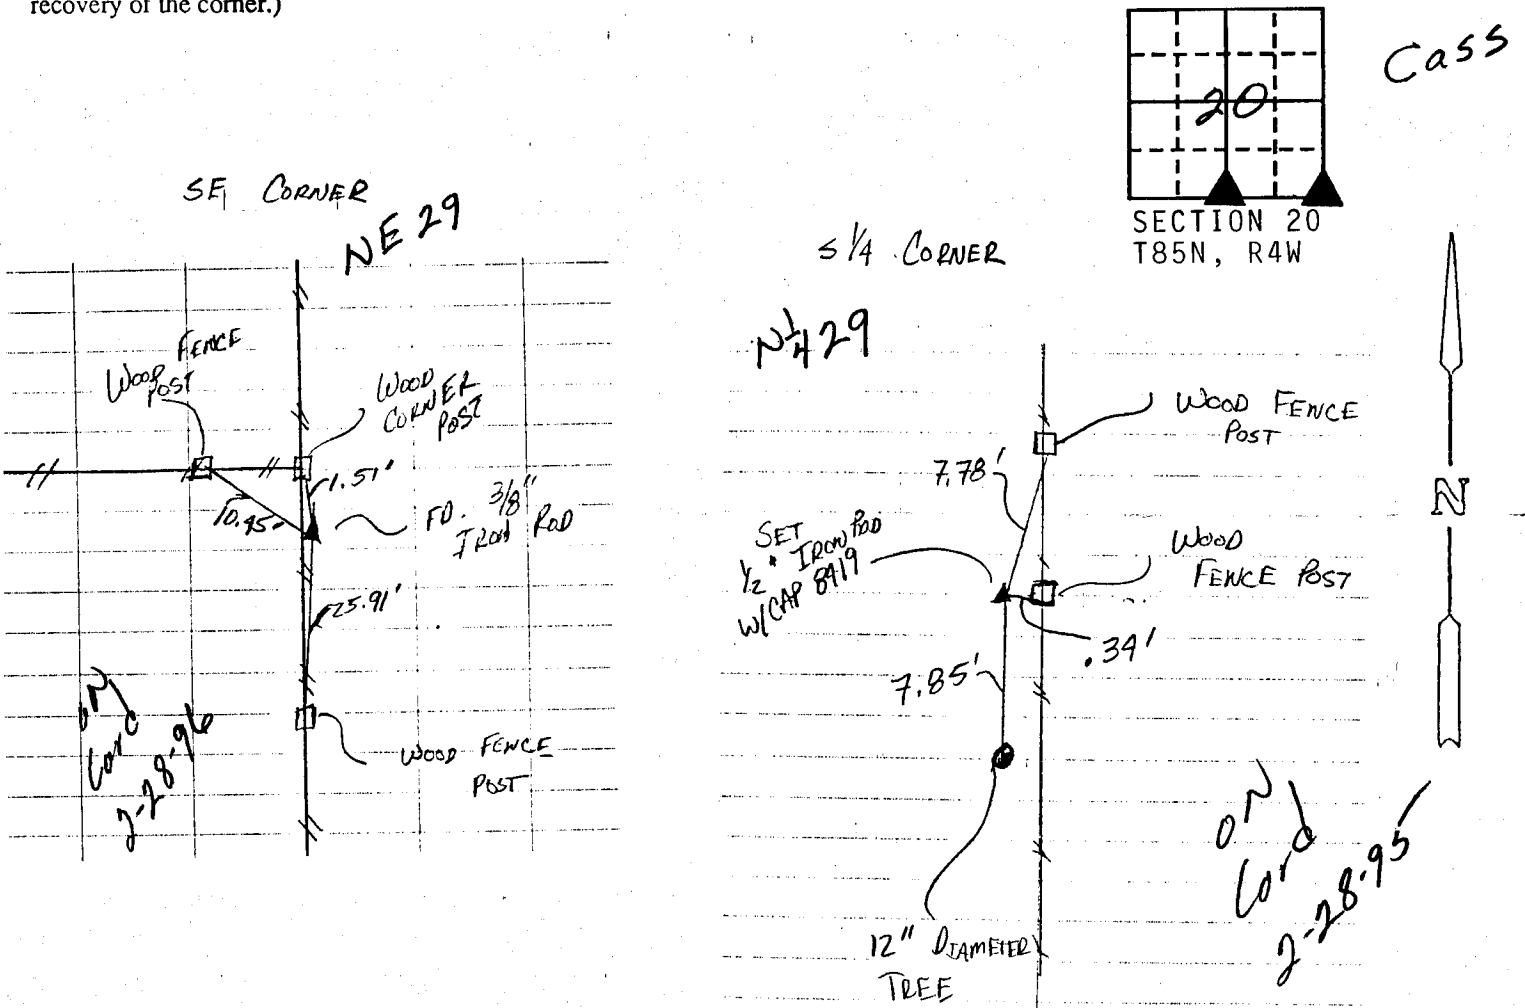 recovery of the corner.)
Cass
20
SECTION 20
T85N, R4W
SE CORNER
NE 29
FENCE
WOOD
POST
WOOD
CORNER
POST
1.51'
10.45'
FD. 3/8"
IRON ROD
25.91'
WOOD FENCE
POST
ON
Card
2-28-96
S 1/4 CORNER
N 1/4 29
WOOD FENCE
POST
7.78'
SET
1/2" IRON ROD
W/CAP 8419
WOOD
FENCE POST
.34'
7.85'
12" DIAMETER
TREE
N
ON
Card
2-28-95